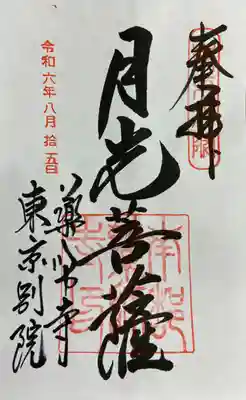 奉拝
月光菩薩
令和六年八月拾五日
薬師寺
東京別院